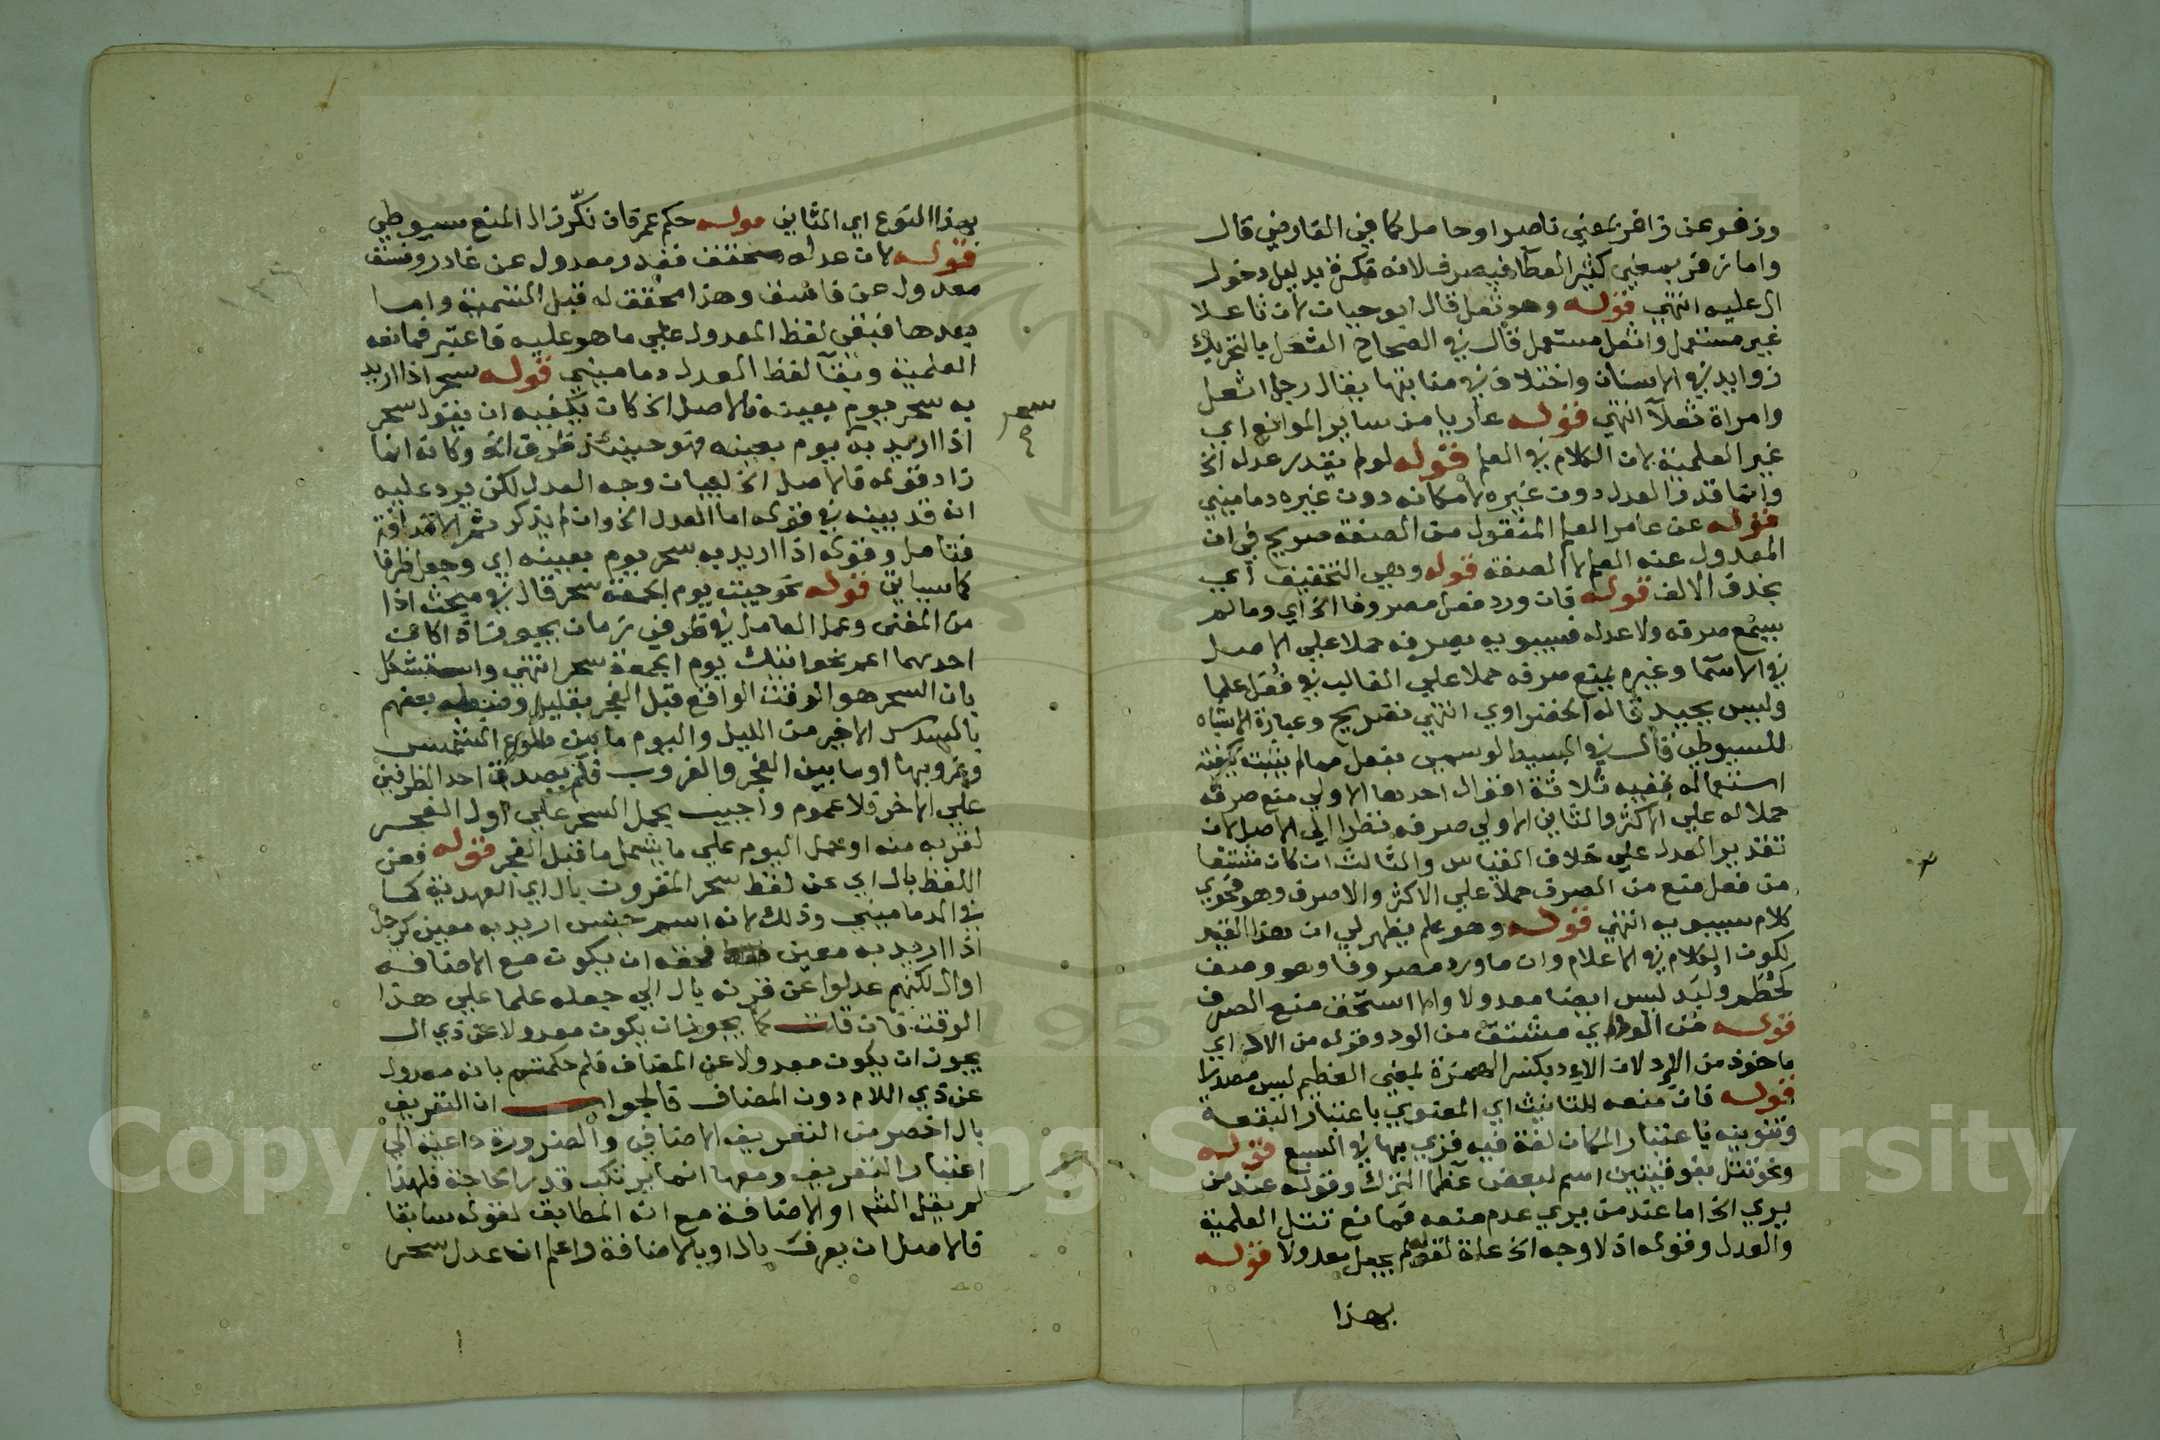 وزفر عن زافر بمعني ناصر او حامل كما في القارضي قال
واما زفر بمعني كثير العطآ فيصرف لانه نكرة بدليل دخول
ال عليه انتهي قوله وهو ثعل قال ابو حيان لان ثاعلا
غير مستعمل واثعل مستعمل قال في الصحاح الثعل بالتحريك
زوايد في الاسنان واختلاف في منابتها يقال رجل اثعل
وامراة ثعلآ انتهي قوله عاريا من ساير الموانع اي
غير العلمية لان الكلام في العلم قوله لو لم يقدر عدله الخ
وانما قدر العدل دون غيره لامكانه دون غيره دماميني
قوله عن عامر العلم المنقول من الصفة صريح في ان
المعدول عنه العلم لا الصفة قوله وهي التخفيف اي
بحذف الالف قوله فان ورد فعل مصروفا الخ اي وما لم
يسمع صرفه ولا عدله فسيبويه يصرفه حملا علي الاصل
في الاسمآ وغيره يمنع صرفه حملا علي الغالب في فعل علما
وليس بجيد قاله الحضراوي انتهي تصريح وعبارة الاشباه
للسيوطي قال في البسيط لو سمي بفعل مما لم يثبت كيفية
استعماله ففيه ثلاثة اقوال احدها الاولي منع صرفه
حملا له علي الاكثر والثاني الاولي صرفه نظرا الي الاصل لان
تقدير العدل علي خلاف القياس والثالث ان كان مشتقا
من فعل منع من الصرف حملا علي الاكثر والا صرف وهو فحوي
كلام سيبويه انتهي قوله وهو علم يظهر لي ان هذا القيد
لكون الكلام في الاعلام وان ما ورد مصروفا وهو وصف
كحطم ولبد ليس ايضا معدولا والا استحق منع الصرف
قوله من الود اي مشتق من الود وقوله من الاد اي
ماخوذ من الاد لان الاد بكسر الهمزة بمعني العظيم ليس مصدرا
قوله فان منعه للتانيث اي المعنوي باعتبار البقعة
وتنوينه باعتبار المكان لغة فيه قري بها في السبع قوله
ونحو تتل بفوقيتين اسم لبعض عظما الترك وقوله عند من
يري الخ اما عند من يري عدم منعه فمانع تتل العلمية
والعدل وقوله اذ لا وجه الخ علة لقوله لم يجعل معدولا قوله
بهذا
بهذا النوع اي الثاني قوله حكم عمر فان نكر زال المنع سيوطي
قوله لان عدله محقق فغدر معدول عن غادر وفسق
معدول عن فاسق وهذا محقق له قبل التسمية واما
بعدها فبقي لفظ المعدول علي ما هو عليه فاعتبر فمانعه
العلمية وبقآ لفظ العدل دماميني قوله سحر اذا اريد
به سحر يوم بعينه فالاصل الخ كان يكفيه ان يقول سحر
اذا اريد به يوم بعينه فهو حينئذ ظرف الخ وكانه انما
زاد قوله فالاصل الخ لبيان وجه العدل لكن يرد عليه
انه قد بينه في قوله اما العدل الخ وان لم يذكر ثم الاضافة
فتامل وقوله اذا اريد به سحر يوم بعينه اي وجعل ظرفا
كما سياتي قوله نحو جيت يوم الجمعة سحر قال في مبحث اذا
من المغني وعمل العامل في ظرفي زمان يجوز اذا كان
احدهما اعم نحو اتيتك يوم الجمعة سحر انتهي واستشكل
بان السحر هو الوقت الواقع قبل الفجر بقليل وضبطه بعضهم
بالسدس الاخير من الليل واليوم ما بين طلوع الشمس
وغروبها او ما بين الفجر والغروب فلم يصدق احد الظرفين
علي الاخر فلا عموم واجيب بحمل السحر علي اول الفجر
لقربه منه او حمل اليوم علي ما يشمل ما قبل الفجر قوله فعن
اللفظ بال اي عن لفظ سحر المقرون بال اي العهدية كما
في الدماميني وذلك لانه اسم جنس اريد به معين كرجل
اذا اريد به معين فحقه ان يكون مع الاضافة
او ال لكنهم عدلوا عن قرنه بال الي جعله علما علي هذا
الوقت فان قلت كما يجوز ان يكون معدولا عن ذي ال
يجوز ان يكون معدولا عن المضاف فلم حكمتم بانه معدول
عن ذي اللام دون المضاف فالجواب ان التعريف
بال اخصر من التعريف الاضافي والضرورة داعية الي
اعتبار التعريف ومعها انما يرتكب قدر الحاجة فلهذا
لم يقل الشم او الاضافة مع انه المطابق لقوله سابقا
فالاصل ان يعرف بال او بالاضافة واعلم ان عدل سحر
Copyright © King Saud University
1957